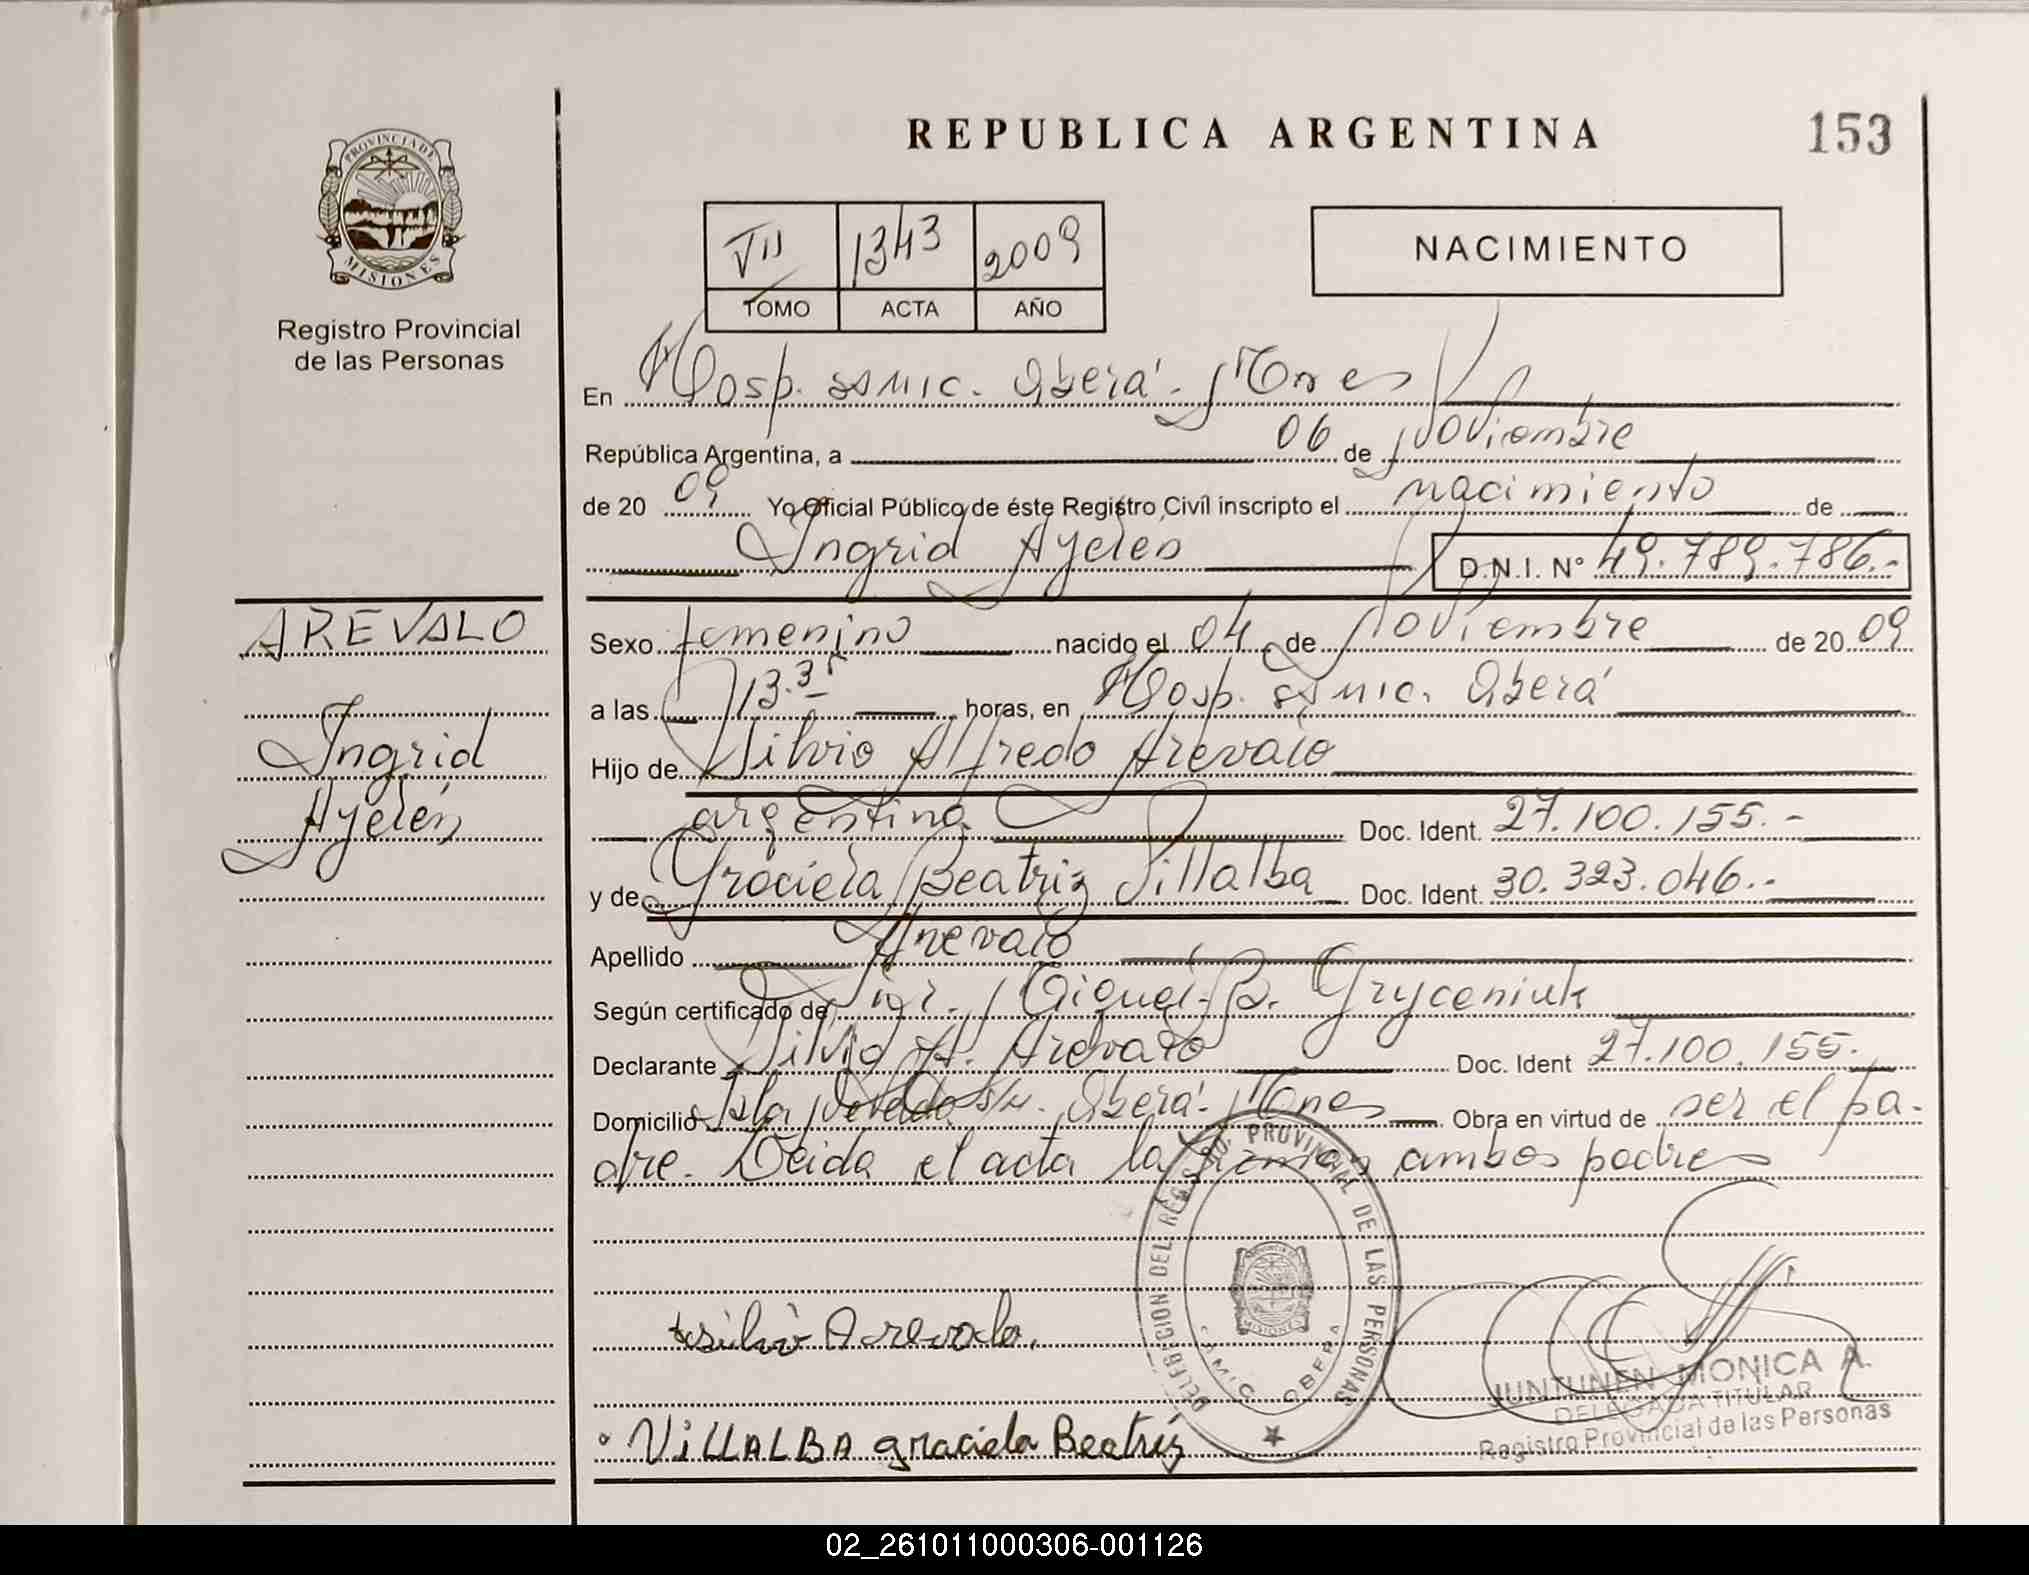 REPUBLICA ARGENTINA
153
PROVINCIA DE MISIONES
Registro Provincial
de las Personas
VII 1343 2009
TOMO ACTA AÑO
NACIMIENTO
En Hosp. SAMIC. Oberá - Mnes
República Argentina, a 06 de Noviembre
de 20 09 Yo Oficial Público de éste Registro Civíl inscripto el nacimiento de
Ingrid Ayelén D.N.I. N° 49.789.786.-
AREVALO
Ingrid
Ayelén
Sexo femenino nacido el 04 de Noviembre de 20 09
a las 13.35 horas, en Hosp. SAMIC. Oberá
Hijo de Silvio Alfredo Arevalo
argentina Doc. Ident. 27.100.155.-
y de Graciela Beatriz Villalba Doc. Ident. 30.323.046.-
Apellido Arevalo
Según certificado de Miguel B. Gryceniuk
Declarante Silvio A. Arevalo Doc. Ident 27.100.155.
Domicilio s/n. Oberá - Mnes Obra en virtud de ser el pa-
dre. Leida el acta la firman ambos padres
DELEGACION DEL REG. PROVINCIAL DE LAS PERSONAS
SAMIC OBERA
MISIONES
silvio Arevalo.
VILLALBA graciela Beatriz
JUNTUNEN MONICA A.
DELEGADA TITULAR
Registro Provincial de las Personas
02_261011000306-001126